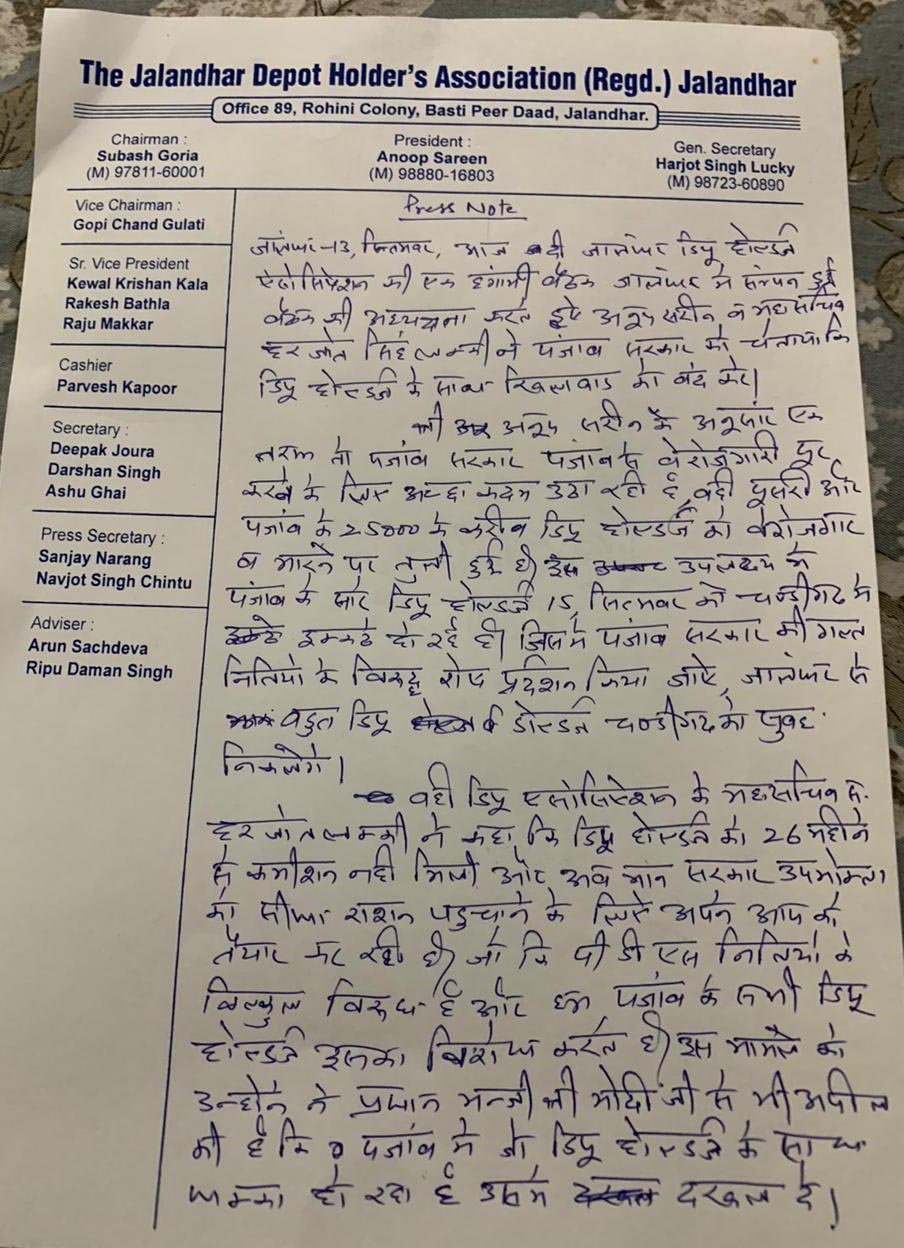 The Jalandhar Depot Holder's Association (Regd.) Jalandhar
Office 89, Rohini Colony, Basti Peer Daad, Jalandhar.
Chairman :
Subash Goria
(M) 97811-60001
President :
Anoop Sareen
(M) 98880-16803
Gen. Secretary
Harjot Singh Lucky
(M) 98723-60890
Vice Chairman :
Gopi Chand Gulati
Sr. Vice President
Kewal Krishan Kala
Rakesh Bathla
Raju Makkar
Cashier
Parvesh Kapoor
Secretary :
Deepak Joura
Darshan Singh
Ashu Ghai
Press Secretary :
Sanjay Narang
Navjot Singh Chintu
Adviser :
Arun Sachdeva
Ripu Daman Singh
Press Note
जालंधर-13, सितम्बर, आज दी जालंधर डिपू होल्डर्ज
एसोसिएशन की एक हंगामी बैठक जालंधर में संपन हुई
बैठक की अध्यक्षता करते हुए अनूप सरीन व महासचिव
हरजोत सिंह लक्की ने पंजाब सरकार को चेताया कि
डिपू होल्डर्ज के साथ खिलवाड को बंद करे।
श्री अनूप सरीन के अनुसार एक
तरफ तो पंजाब सरकार पंजाब से बेरोजगारी दूर
करने के लिए अच्छा कदम उठा रही है, वही दूसरी और
पंजाब के 25000 के करीब डिपू होल्डर्ज को बेरोजगार
व मारने पर तुली हुई है। इस उपलक्ष्य में
पंजाब के सारे डिपू होल्डर्ज 15, सितम्बर को चण्डीगढ में
इक्कठे हो रहे है। जिसमे पंजाब सरकार की गलत
नितियो के विरुद्ध रोष प्रदिशन किया जाऐ, जालंधर से
बहुत डिपू होल्डर्ज चण्डीगढ को सुबह
निकलेंगे।
वही डिपू एसोसिऐशन के महासचिव स.
हरजोत लक्की ने कहा, कि डिपू होल्डर्ज को 26 महीने
से कमीशन नही मिली और अब मान सरकार उपभोक्ता
को सीधा राशन पहुचाने के लिऐ अपने आप को
तैयार कर रही है। जो कि पी डी एस नितियो के
बिल्कुल विरुध है और हम पंजाब के सभी डिपू
होल्डर्ज इसका विरोध करते है। इस मामले को
उन्होने ने प्रधान मन्त्री श्री मोदी जी से भी अपील
की है कि पंजाब में जो डिपू होल्डर्ज के साथ
धक्का हो रहा है उसमे दखल दे।